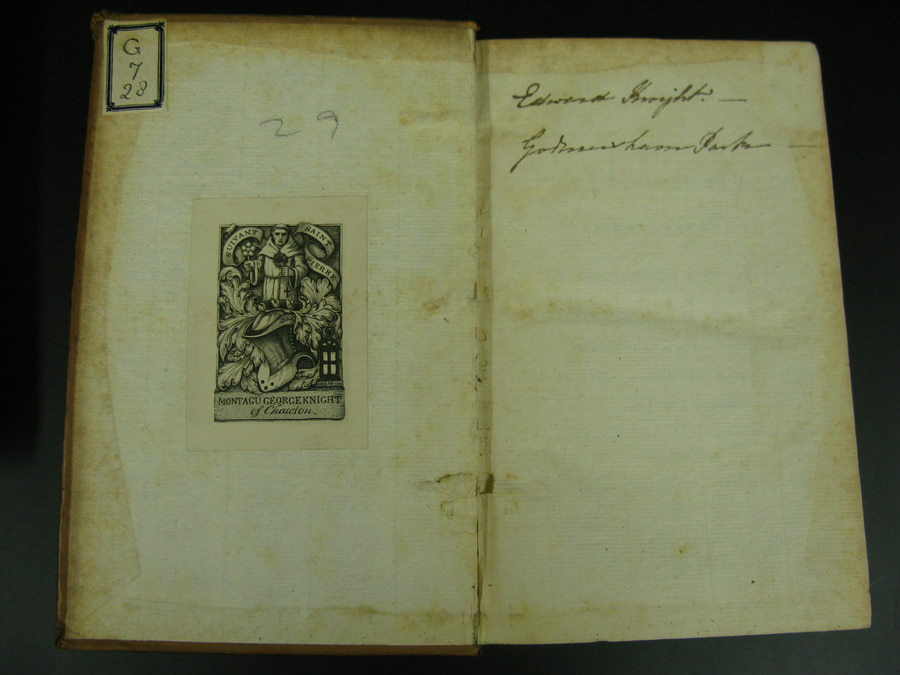 G
7
28
29
SUIVANT SAINT PIERRE
MONTAGU GEORGE KNIGHT
of Chawton.
Edward Knight. —
Godmersham Park —